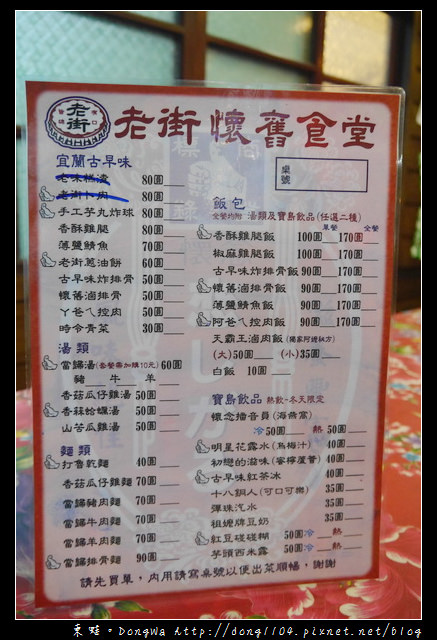 老街
老街懷舊食堂
桌號
宜蘭古早味
老味糕渣 80圓
老街卜肉 80圓
手工芋丸炸球 80圓
香酥雞腿 80圓
薄鹽鯖魚 70圓
老街蔥油餅 60圓
古早味炸排骨 50圓
懷舊滷排骨 50圓
ㄚ爸ㄟ控肉 50圓
時令青菜 30圓
湯類
當歸湯(套餐需加購10元) 60圓
豬 牛 羊
香菇瓜仔雞湯 50圓
香菻蛤蠣湯 50圓
山苦瓜雞湯 50圓
麵類
打魯乾麵 40圓
香菇瓜仔雞麵 70圓
當歸豬肉麵 70圓
當歸牛肉麵 70圓
當歸羊肉麵 70圓
當歸排骨麵 90圓
飯包
全餐均附 湯類及寶島飲品(任選二種)
單餐 全餐
香酥雞腿飯 100圓 170圓
椒麻雞腿飯 100圓 170圓
古早味炸排骨飯 90圓 170圓
懷舊滷排骨飯 90圓 170圓
薄鹽鯖魚飯 90圓 170圓
阿爸ㄟ控肉飯 90圓 170圓
天霸王滷肉飯(獨家阿嬤秘方)
(大)50圓 (小)35圓
白飯 10圓
寶島飲品 熱飲-冬天限定
懷念播音員(海燕窩)
冷50圓 熱50圓
明星花露水(烏梅汁) 40圓
初戀的滋味(蜜檸蘆薈) 40圓
古早味紅茶冰 40圓
十八銅人(可口可樂) 35圓
彈珠汽水 35圓
祖嬤牌豆奶 35圓
紅豆碰碰糊 50圓冷 熱
芋頭西米露 50圓冷 熱
請先買單，內用請寫桌號以便出菜順暢，謝謝
東蛙。DongWa http://dong1104.pixnet.net/blog